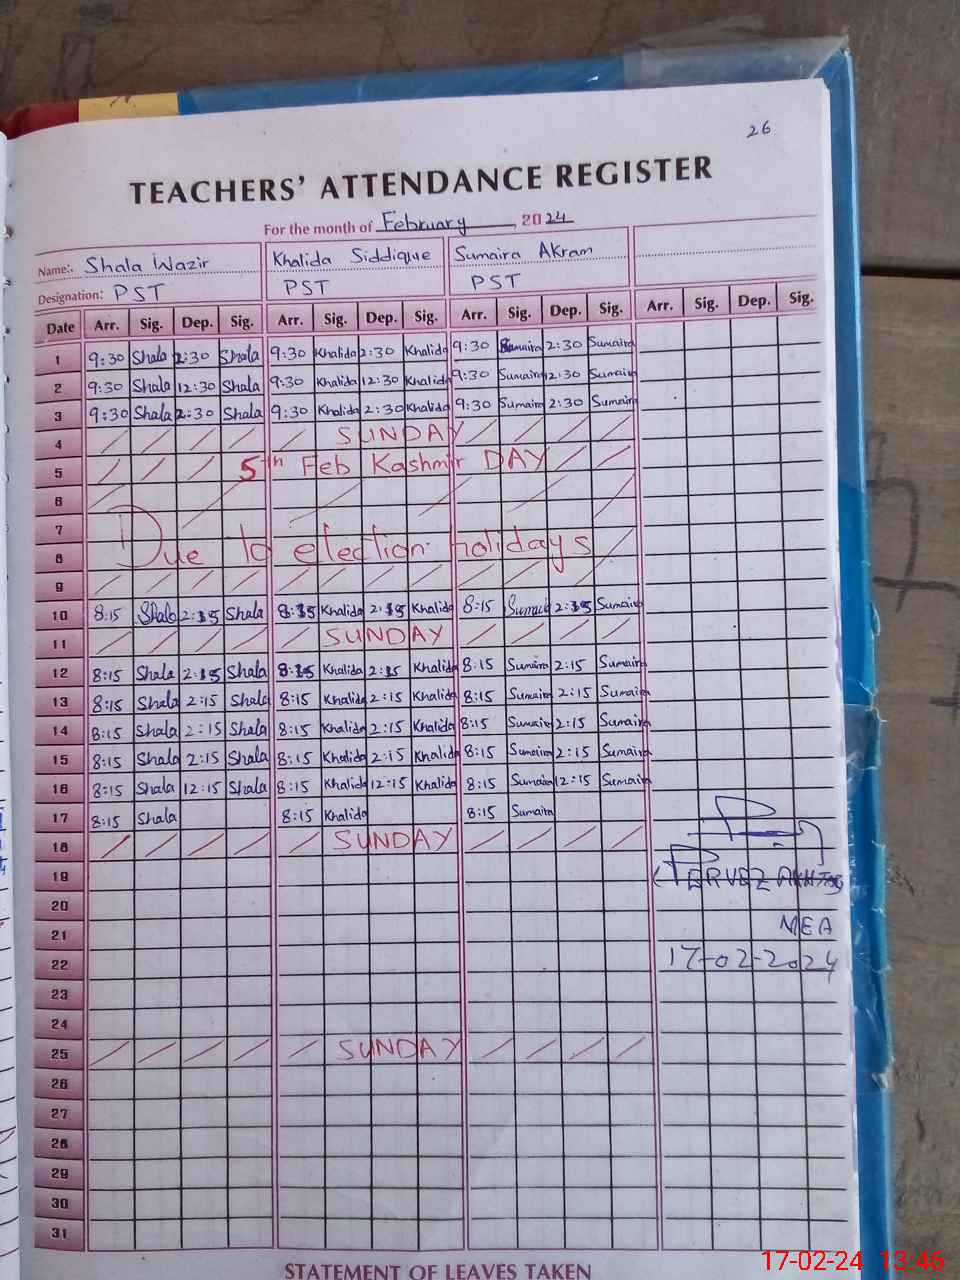 26
TEACHERS' ATTENDANCE REGISTER
For the month of February, 2024
Name:. Shala Wazir Khalida Siddique Sumaira Akram
Designation: PST PST PST
Date Arr. Sig. Dep. Sig. Arr. Sig. Dep. Sig. Arr. Sig. Dep. Sig. Arr. Sig. Dep. Sig.
1 9:30 Shala 2:30 Shala 9:30 Khalida 2:30 Khalida 9:30 Sumaira 2:30 Sumaira
2 9:30 Shala 12:30 Shala 9:30 Khalida 12:30 Khalida 9:30 Sumaira 12:30 Sumaira
3 9:30 Shala 2:30 Shala 9:30 Khalida 2:30 Khalida 9:30 Sumaira 2:30 Sumaira
4 SUNDAY
5 5th Feb Kashmir DAY
6
7
8 Due to election holidays
9
10 8:15 Shala 2:15 Shala 8:15 Khalida 2:15 Khalida 8:15 Sumaira 2:15 Sumaira
11 SUNDAY
12 8:15 Shala 2:15 Shala 8:15 Khalida 2:15 Khalida 8:15 Sumaira 2:15 Sumaira
13 8:15 Shala 2:15 Shala 8:15 Khalida 2:15 Khalida 8:15 Sumaira 2:15 Sumaira
14 8:15 Shala 2:15 Shala 8:15 Khalida 2:15 Khalida 8:15 Sumaira 2:15 Sumaira
15 8:15 Shala 2:15 Shala 8:15 Khalida 2:15 Khalida 8:15 Sumaira 2:15 Sumaira
16 8:15 Shala 12:15 Shala 8:15 Khalida 12:15 Khalida 8:15 Sumaira 12:15 Sumaira
17 8:15 Shala 8:15 Khalida 8:15 Sumaira
18 SUNDAY
19 (PERVEZ AKHTAR)
20
21 MEA
22 17-02-2024
23
24
25 SUNDAY
26
27
28
29
30
31
STATEMENT OF LEAVES TAKEN
17-02-24 13:46